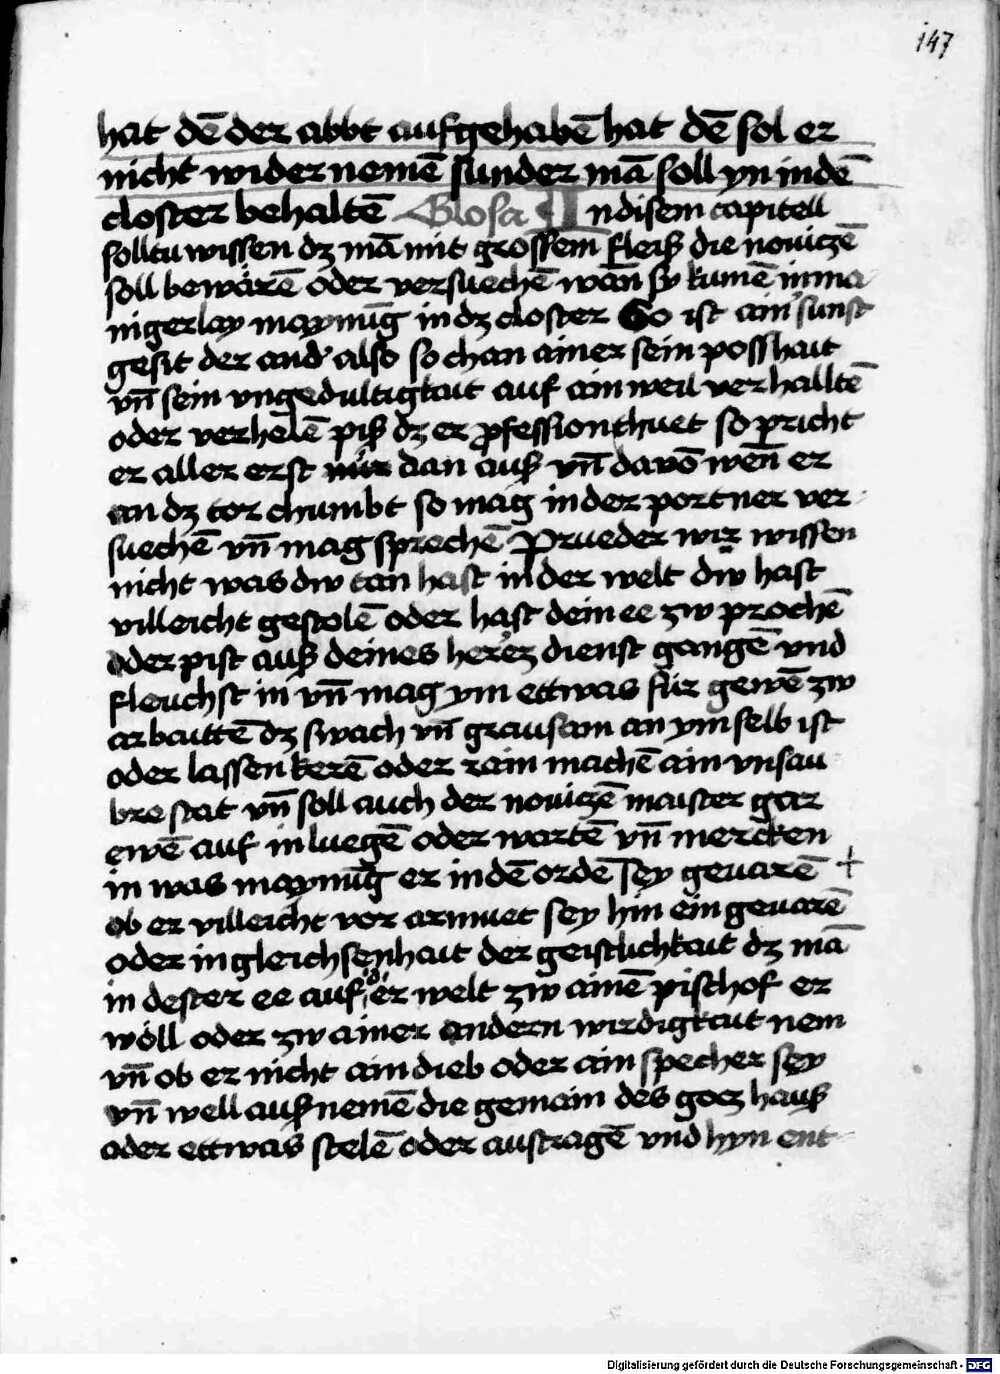 147
hat dē der abbt aufgehabē hat dē sol er
nicht wider nemē sunder mā soll yn in dē
closter behaltē Glosa In disem capitell
solltu wissen dz mā mit grossem fleiß die nouiczē
soll bewärē oder versuechē wān sy kumē in ma
nigerlay maynūg in dz closter So ist ain' sunst
gesit der and' also so chan ainer sein posshait
vn̄ sein vngedultigkait auf ain weil verhalltē
oder verhelē piß dz er pfession thuet so pricht
er aller erst dan auß vn̄ davō wen̄ er
an dz tor chumbt so mag in der portner ver
suechē vn̄ mag sprechē Prueder wir wissen
nicht was dw tan hast in der welt dw hast
villeicht gestolē oder hast dein ee zw prochē
oder pist auß deines herēz dienst gangē vnd
fleuchst in vn̄ mag ym ettwas für gewē zw
arbaittē dz swach vn̄ grausam an ym selb ist
oder lassen kerē oder rain machē ain vnsau
bre stat vn̄ soll auch der nouiczē maister gar
ewē auf in luegē oder wartē vn̄ mercken
in was maynūg er in dē ordē sey geuarē +
ob er villeicht vor armuet sey hin ein geuarē
oder in gleichsenhait der geistlichkait dz mā
in dester ee auß d'er welt zw ainē pischof er
wöll oder zw ainer andern wirdigkait nem
vn̄ ob er nicht ain dieb oder ain specher sey
vn̄ well auß nemē die gemain des gocz hauß
oder ettwas stelē oder austragē vnd hyn ent
Digitalisierung gefördert durch die Deutsche Forschungsgemeinschaft - DFG